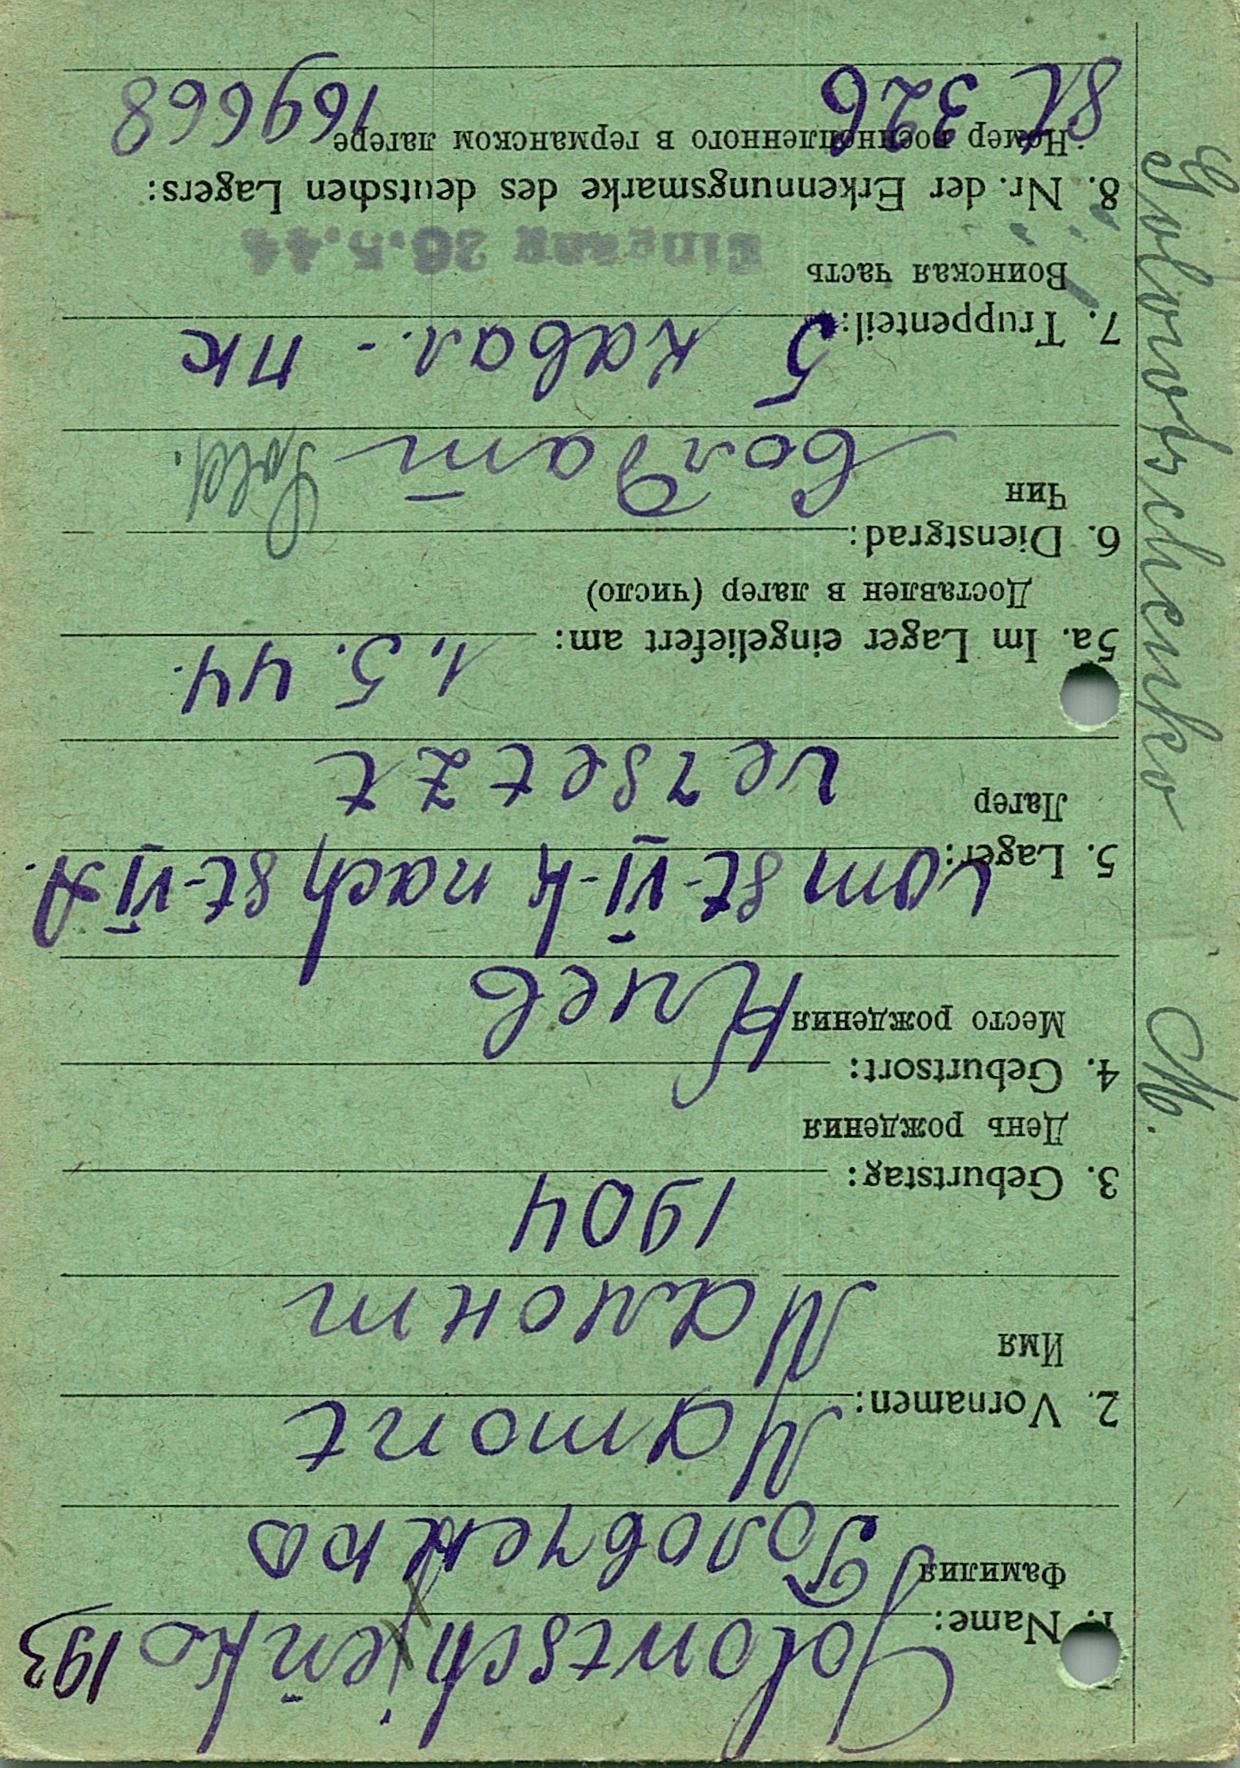 Golovotschenko M.
1. Name: Golowtschjenko 193
Фамилия Головченко
2. Vornamen: Mamont
Имя Мамонт
3. Geburtstag: 1904
День рождения
4. Geburtsort:
Место рождения Киев
5. Lager: vom St-VI-K nach St-VI A.
Лагер versetzt
5a. Im Lager eingeliefert am: 1.5.44.
Доставлен в лагер (число)
6. Dienstgrad: Sold.
Чин Солдат
7. Truppenteil: 5 кавал.-пк
Воинская часть
Eingang 26.5.44
8. Nr. der Erkennungsmarke des deutschen Lagers:
Номер военнопленного в германском лагере
St 326 169668